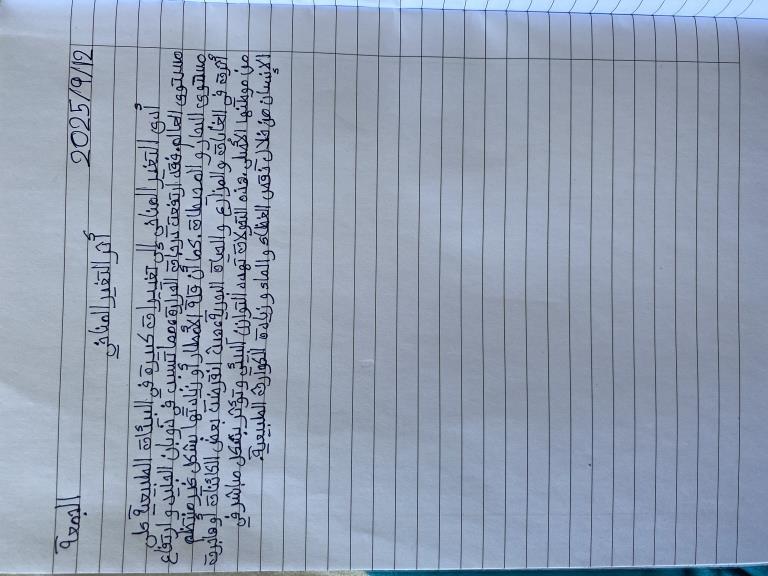 الجمعة 2025/9/12
أثر التغير المناخي
أدى التغير المناخي إلى تغييرات كبيرة في البيئات الطبيعية على
مستوى العالم. فقد ارتفعت درجات الحرارة مما تسبب في ذوبان الجليد و ارتفاع
مستوى البحار و المحيطات. كما أن قلة الأمطار و زيادتها بشكل غير منتظم
أثرت في الغابات و المزارع و الحياة البرية، حيث انقرضت بعض الكائنات أو هاجرت
من موطنها الأصلي. هذه التحولات تهدد التوازن البيئي و تؤثر بشكل مباشر في
الإنسان من خلال نقص الغذاء و الماء و زيادة الكوارث الطبيعية.